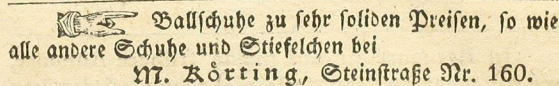 Ballschuhe zu sehr soliden Preisen, so wie
alle andere Schuhe und Stiefelchen bei
M. Körting, Steinstraße Nr. 160.